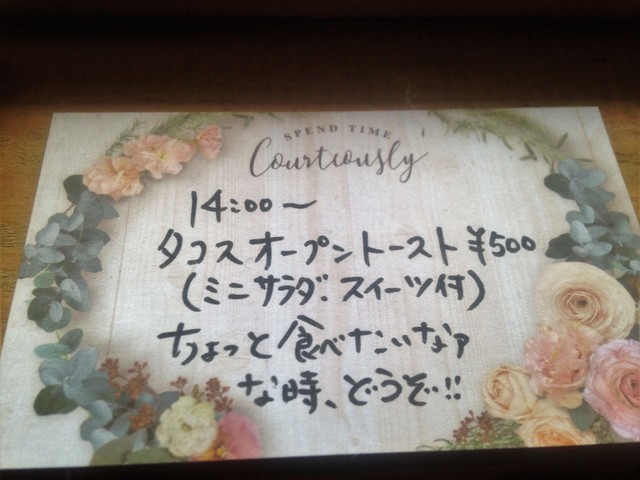 SPEND TIME
Courteously
14:00〜
タコスオープントースト ¥500
(ミニサラダ・スイーツ付)
ちょっと食べたいなァ
な時、どうぞ!!